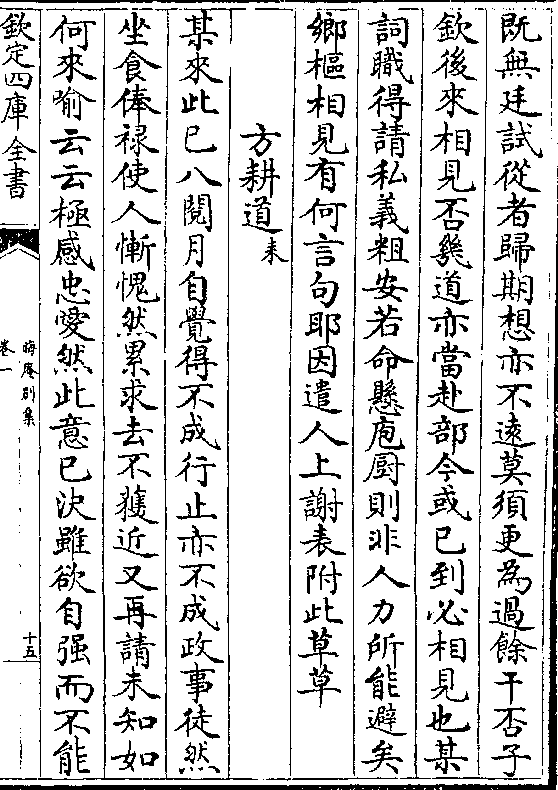 既無廷試從者歸期想亦不逺莫須更為過餘干否子
欽後來相見否㡬道亦當赴部今或已到必相見也某
詞職得請私義粗安若命懸庖厨則非人力所能避矣
鄉樞相見有何言句耶因遣人上謝表附此草草
方耕道耒
某來此已八閱月自覺得不成行止亦不成政事徒然
坐食俸禄使人慚愧然累求去不獲近又再請未知如
何來喻云云極感忠愛然此意已決雖欲自强而不能
欽定四庫全書
晦庵别集
卷一
十五